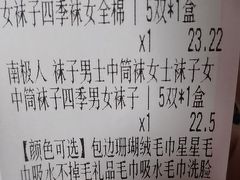 女袜子四季袜女全棉 | 5双*1盒
x1 23.22
南极人 袜子男士中筒袜女士袜子女
中筒袜子四季男女袜子 | 5双*1盒
x1 22.5
【颜色可选】包边珊瑚绒毛巾星星毛
巾吸水不掉毛礼品毛巾吸水毛巾洗脸